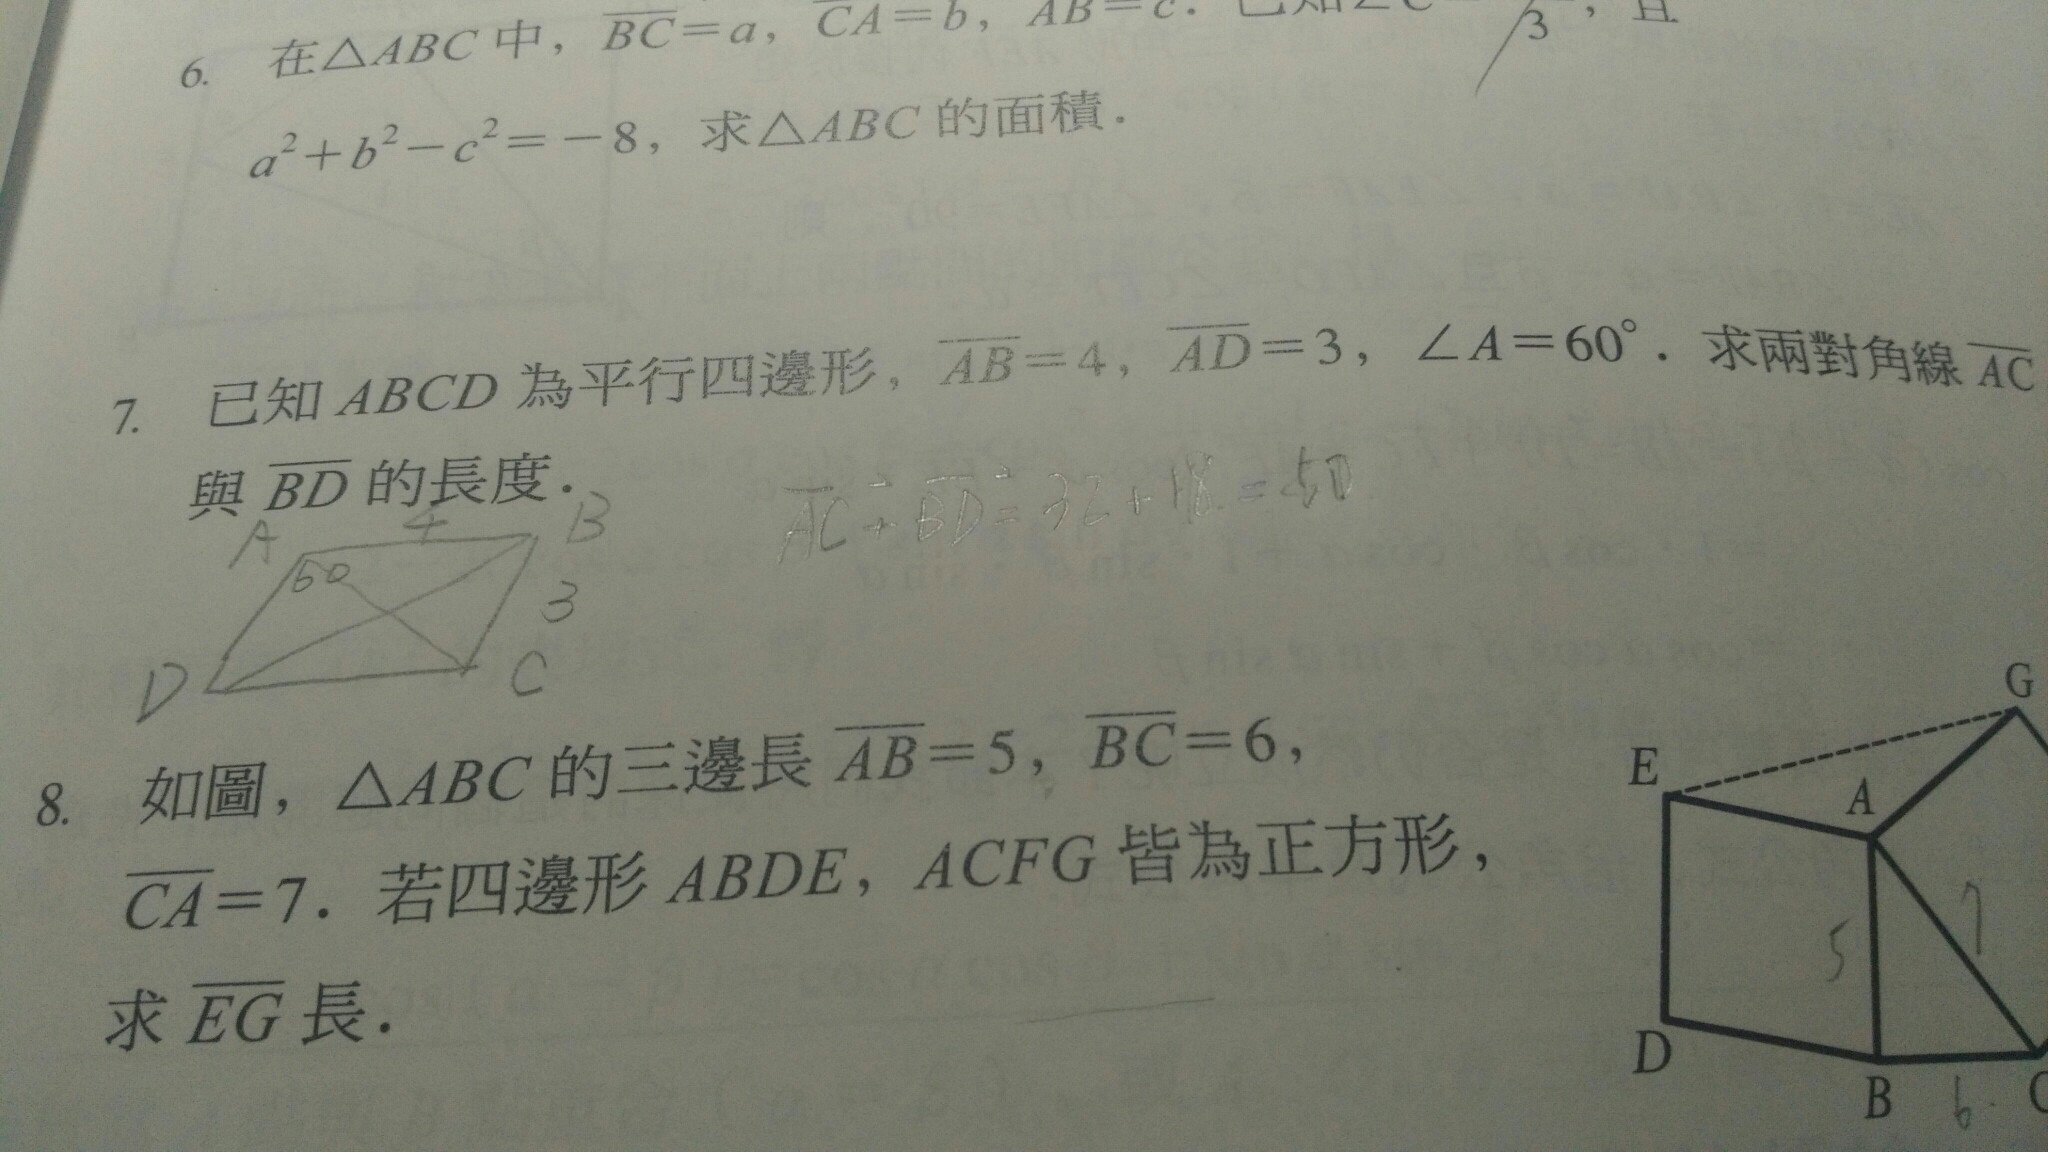 6. 在△ABC 中，BC=a，CA=b，AB=c．已知∠C= /3，且
a²+b²−c²=−8，求△ABC 的面積．
7. 已知 ABCD 為平行四邊形，AB=4，AD=3，∠A=60°．求兩對角線 AC
與 BD 的長度．
AC²+BD²=32+18=50
A 4 B
60
3
D C
8. 如圖，△ABC 的三邊長 AB=5，BC=6，
CA=7．若四邊形 ABDE，ACFG 皆為正方形，
求 EG 長．
G
E
A
7
5
D
B 6 C